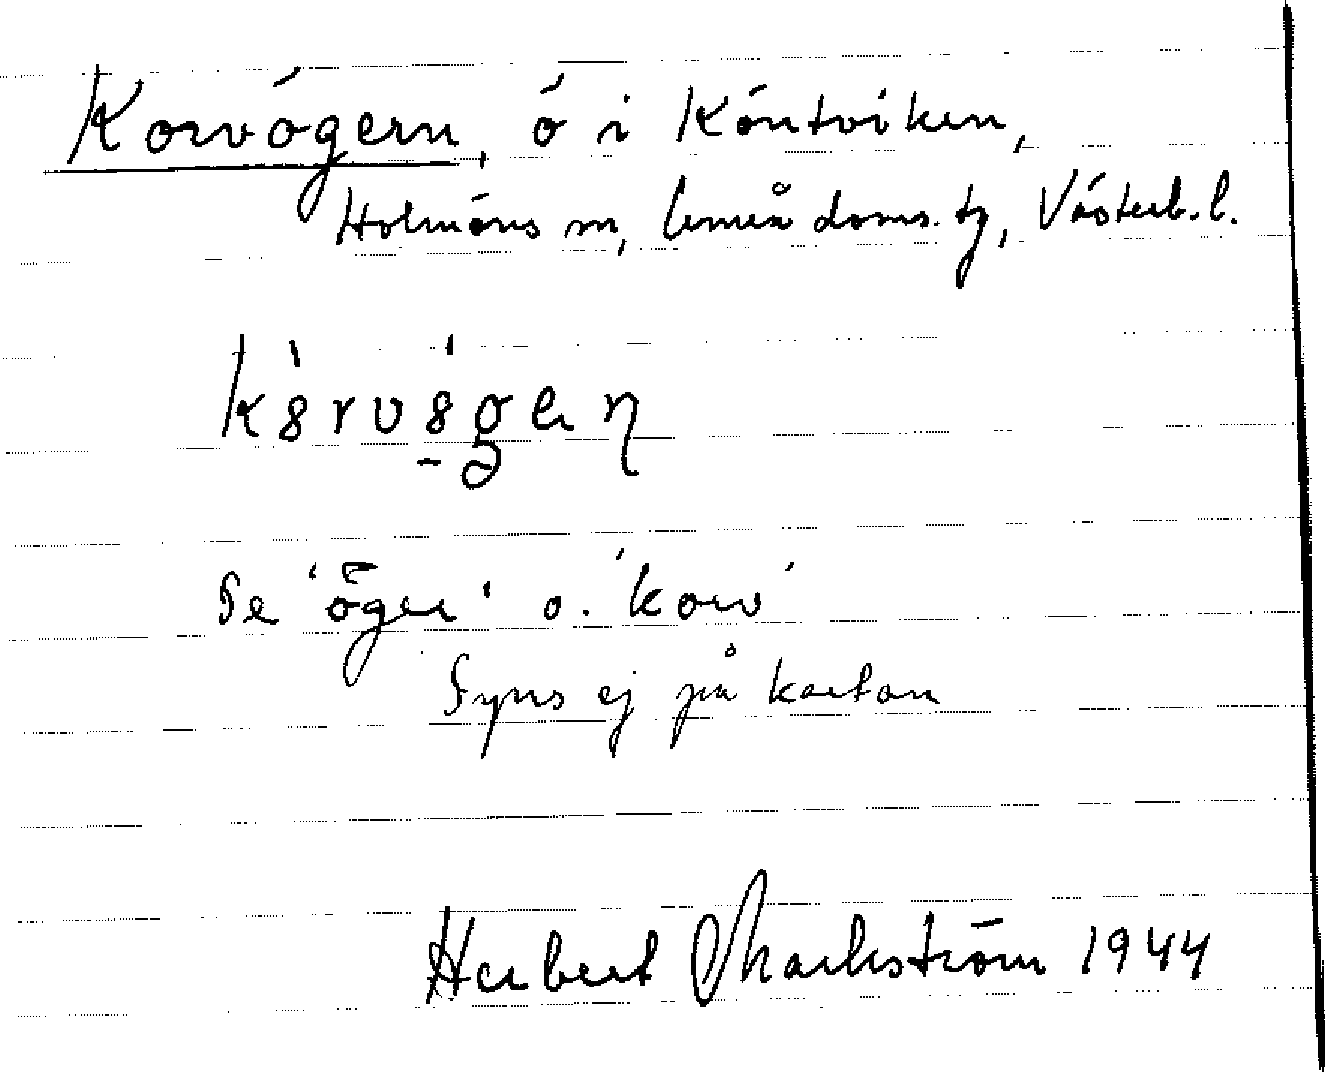 Korvögern, ö i Köntviken,
Holmöns sn, Umeå doms. tg, Västerb. l.
Se 'öger' o. 'korv'
Syns ej på kartan
Herbert Markström 1944